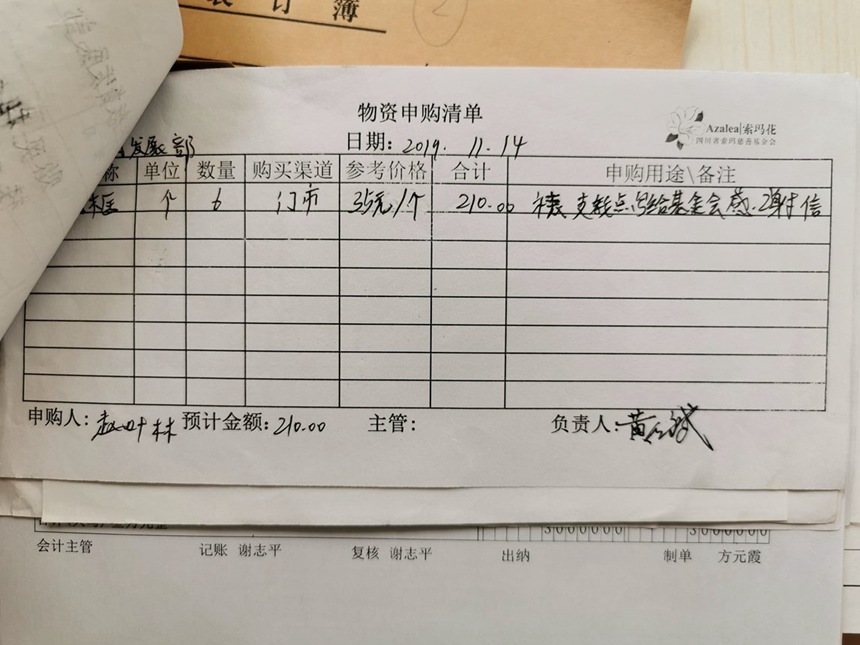 订 簿
2
物资申购清单
Azalea 索玛花
四川省索玛慈善基金会
发展部 日期：2019. 11. 14
称 单位 数量 购买渠道 参考价格 合计 申购用途\备注
框 个 6 门市 35元/个 210.00 支教点写给基金会感谢信
申购人： 预计金额：210.00 主管： 负责人：黄
3000000 3000000
会计主管 记账 谢志平 复核 谢志平 出纳 制单 方元霞